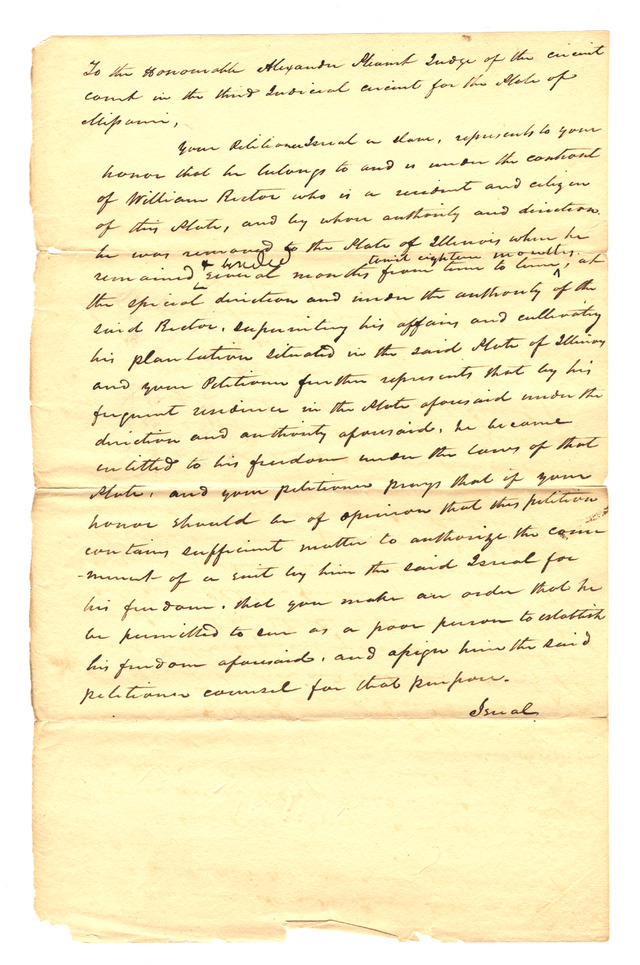 To the Honourable Alexander Stuart Judge of the circuit
court in the third Judicial circuit for the State of
Missouri,
Your Petitioner Isreal a slave, represents to your
honor that he belongs to and is under the controul
of William Rector who is a resident and citizen
of this State, and by whose authority and direction
he was removed to the State of Illinois where he
remained & worked several months from time to time, at
until eighteen months
the special direction and under the authority of the
said Rector, superinting his affairs and cultivating
his plantation situated in the said State of Illinois
and your Petitioner further represents that by his
frequent residence in the State aforesaid under the
direction and authority aforesaid, he became
intitled to his freedom under the laws of that
State, and your petitioner prays that if your
honor should be of opinion that this petition
contains sufficient matter to authorize the com
-ment of a suit by him the said Isreal for
his freedom, that you make an order that he
be permitted to sue as a poor person to establish
his freedom aforesaid, and assign him the said
petitioner counsel for that purpose.
Isreal